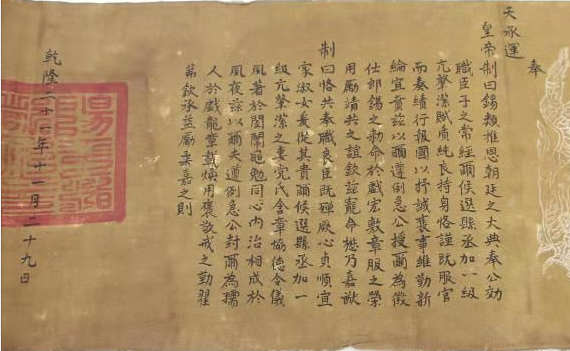 奉
天承運
皇帝制曰錫類推恩朝廷之大典奉公効
職臣子之常經爾候選縣丞加一級
亢肇潔賦質純良持身恪謹既服官
而奏績行報國以抒誠褒事維勤新
綸宜賁兹以爾遵例急公授爾為徵
仕郎錫之勅命於戲宏敷章服之榮
用勵靖共之誼欽兹寵命懋乃嘉猷
制曰恪共奉職良臣既殫厥心貞順宜
家淑女爰從其貴爾候選縣丞加一
級亢肇潔之妻党氏含章協德令儀
夙著於閨闈黽勉同心內治相成於
夙夜兹以爾夫遵例急公封爾為孺
人於戲龍章載煥用褒敬戒之勤翟
茀欽承益勵柔嘉之則
乾隆二十一年十一月二十九日